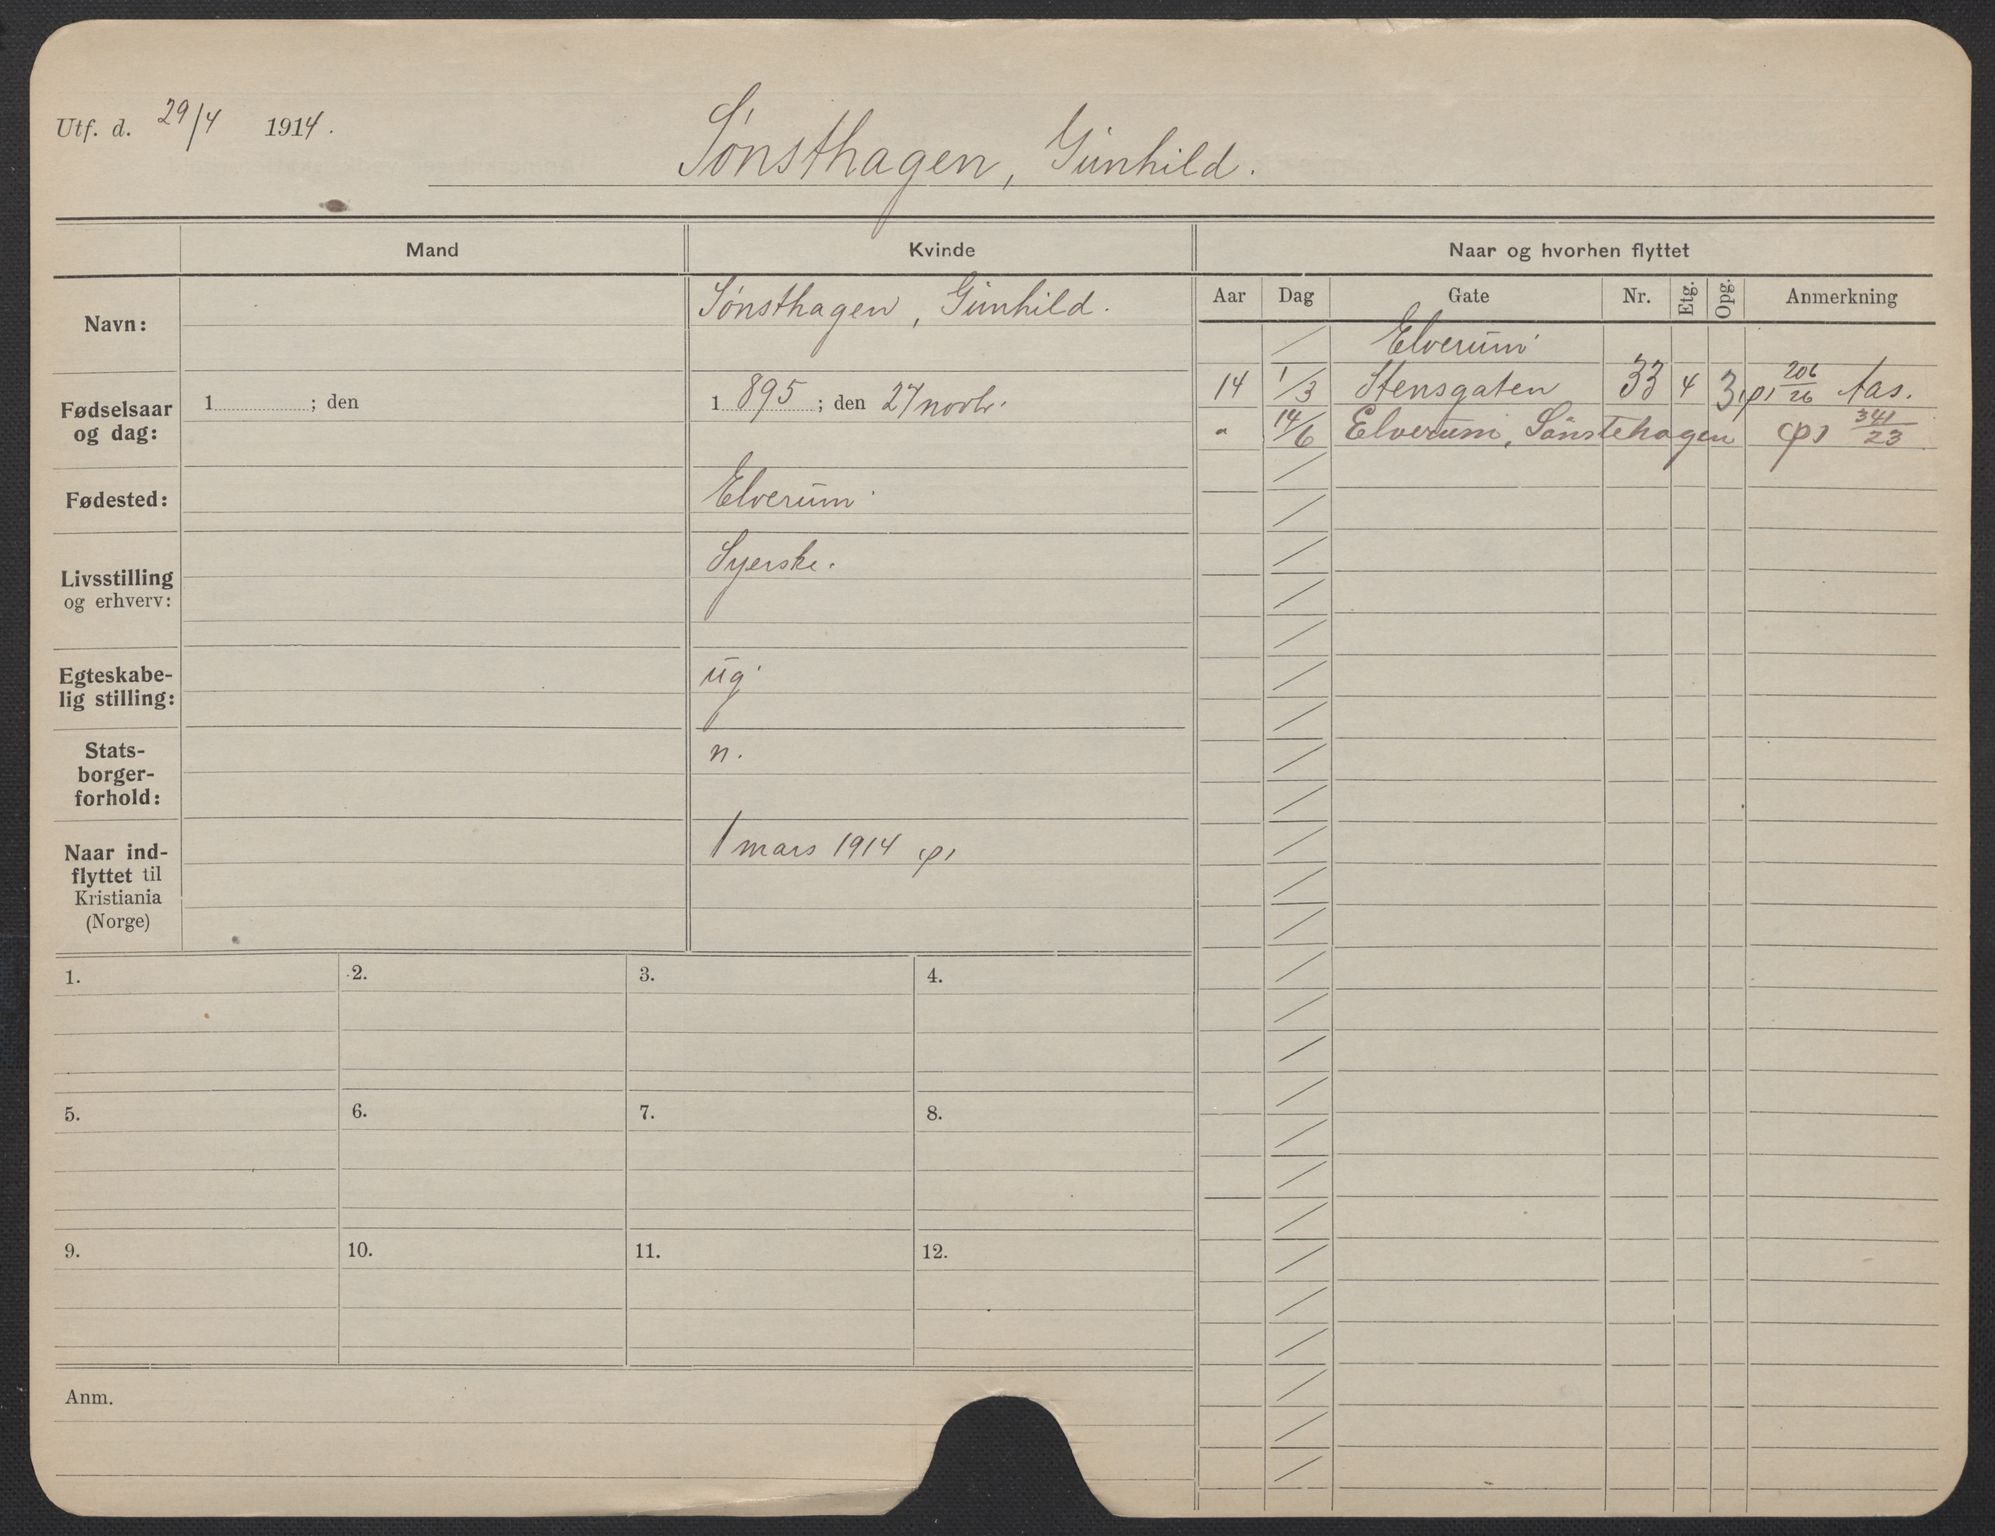 Utf. d. 29/4 1914.
Sønsthagen, Gunhild.
Mand Kvinde Naar og hvorhen flyttet
Navn: Sønsthagen, Gunhild.
Aar Dag Gate Nr. Etg. Opg. Anmerkning
/ Elverum
14 1/3 Stensgaten 33 4 3 206/26 Aas.
" 14/6 Elverum, Sønstehagen 341/23
Fødselsaar og dag:
1 ; den
1 895 ; den 27 novbr.
Fødested: Elverum
Livsstilling og erhverv: Syerske.
Egteskabe-
lig stilling: ug.
Stats-
borger-
forhold: n.
Naar ind-
flyttet til
Kristiania
(Norge)
1 mars 1914
1. 2. 3. 4.
5. 6. 7. 8.
9. 10. 11. 12.
Anm.